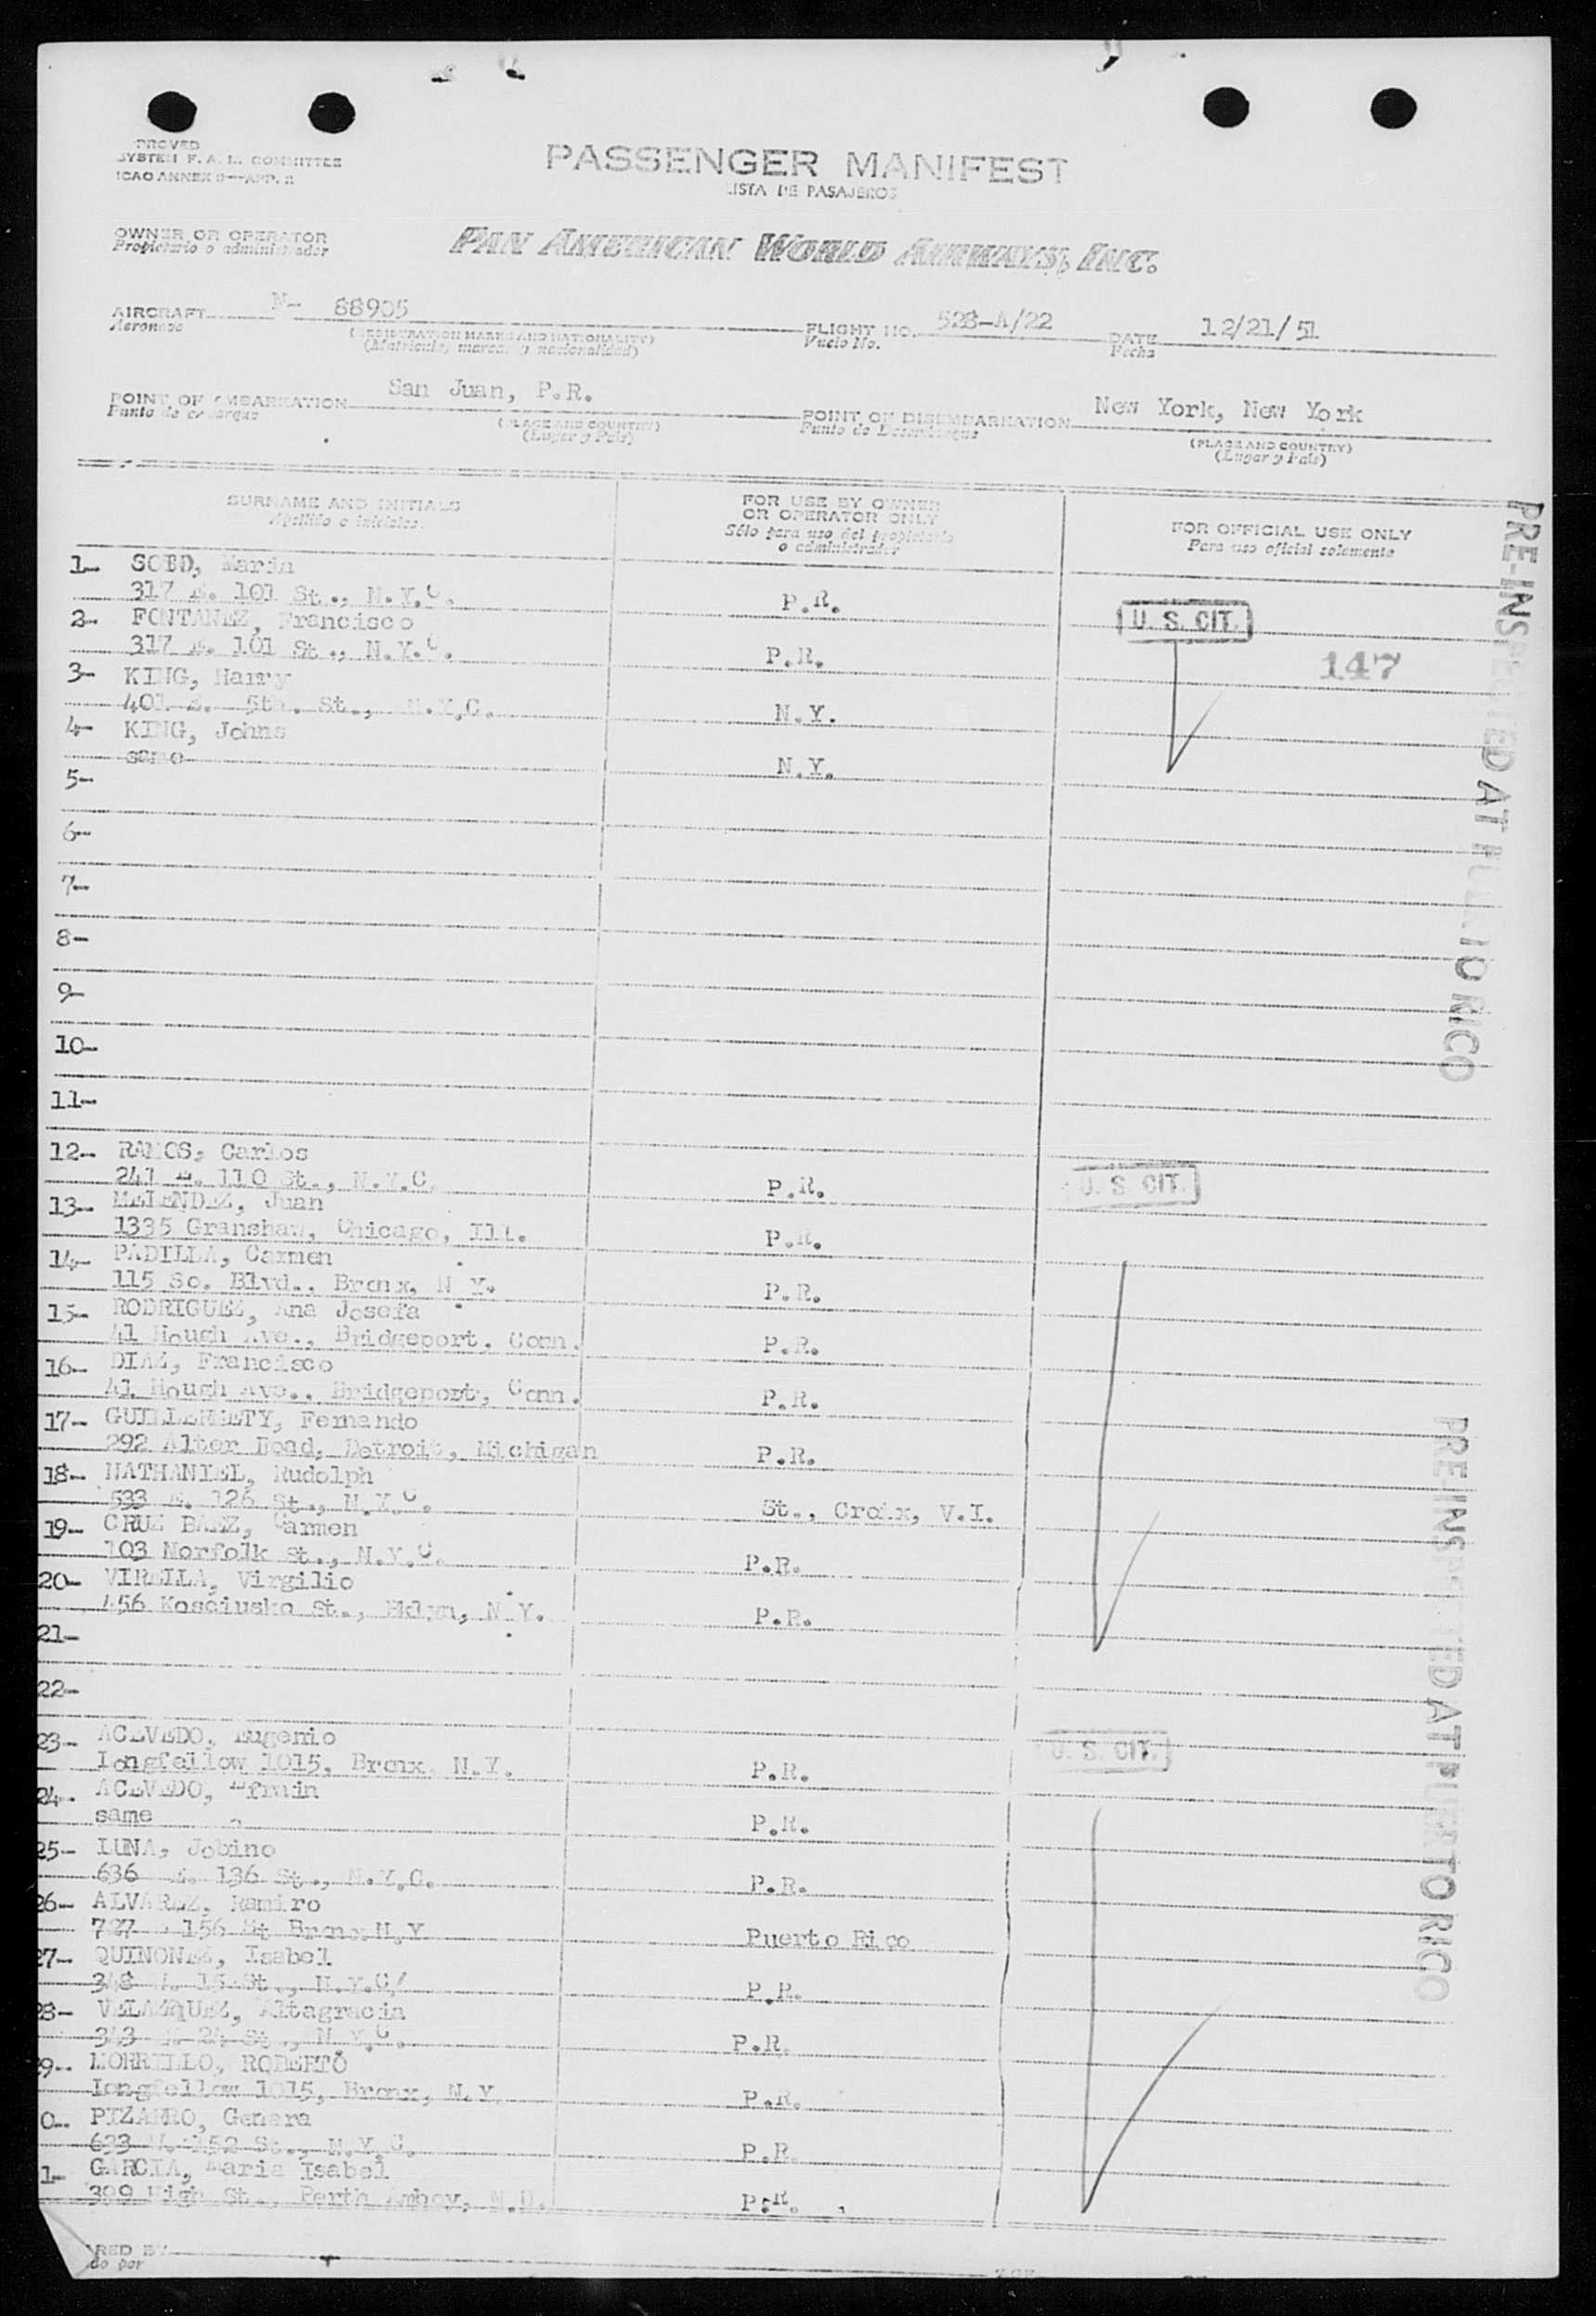 PROVED
SYSTEM F. A. L. COMMITTEE
ICAO ANNEX 9—APP. B
PASSENGER MANIFEST
LISTA DE PASAJEROS
OWNER OR OPERATOR
Propietario o administrador
PAN AMERICAN WORLD AIRWAYS, INC.
AIRCRAFT N- 88905
Aeronave
(REGISTRATION MARKS AND NATIONALITY)
(Matricula, marcas y nacionalidad)
FLIGHT NO. 528-A/22
Vuelo No.
DATE 12/21/51
Fecha
POINT OF EMBARKATION San Juan, P.R.
Punto de embarque
(PLACE AND COUNTRY)
(Lugar y Pais)
POINT OF DISEMBARKATION New York, New York
Punto de Desembarque
(PLACE AND COUNTRY)
(Lugar y Pais)
SURNAME AND INITIALS
Apellido e iniciales.
FOR USE BY OWNER
OR OPERATOR ONLY
Sólo para uso del propietario
o administrador
FOR OFFICIAL USE ONLY
Para uso oficial solamente
PRE-INSPECTED AT PUERTO RICO
1- Maria
317 E. 101 St., N.Y.C. P.R.
U. S. CIT.
2- FONTANEZ, Francisco
317 E. 101 St., N.Y.C. P.R.
147
3- KING, Harry
401 E. 5th. St., N.Y.C. N.Y.
4- KING, Johns
same N.Y.
5-
6-
7-
8-
9-
10-
11-
12- RAMOS, Carlos
241 E. 110 St., N.Y.C. P.R.
U. S. CIT.
13- MELENDEZ, Juan
1335 Granshaw, Chicago, Ill. P.R.
14- PADILLA, Carmen
115 So. Blvd., Bronx, N Y. P.R.
15- RODRIGUEZ, Ana Josefa
41 Hough Ave., Bridgeport, Conn. P.R.
16- DIAZ, Francisco
41 Hough Ave., Bridgeport, Conn. P.R.
17- GUILLERMETY, Fernando
292 Alter Road, Detroit, Michigan P.R.
18- NATHANIEL, Rudolph
533 E. 126 St., N.Y.C. St., Croix, V.I.
19- CRUZ BAEZ, Carmen
103 Norfolk St., N.Y.C. P.R.
20- VIRELLA, Virgilio
456 Kosciusko St., Bklyn, N.Y. P.R.
21-
22-
PRE-INSPECTED AT PUERTO RICO
23- ACEVEDO, Eugenio
Longfellow 1015, Bronx, N.Y. P.R.
U. S. CIT.
24- ACEVEDO, Efrain
same P.R.
25- LUNA, Jobino
636 E. 136 St., N.Y.C. P.R.
26- ALVAREZ, Ramiro
727 E 156 St Bronx N.Y Puerto Rico
27- QUINONEZ, Isabel
348 W. 15 St., N.Y.C/ P.R.
28- VELAZQUEZ, Altagracia
343 24 St., N.Y.C. P.R.
9- MORRELLO, ROBERTO
Longfellow 1015, Bronx, N.Y. P.R.
0- PIZARRO, Genera
633 W. 152 St., N.Y.C. P.R.
1- GARCIA, Maria Isabel
399 High St., Perth Amboy, P.R.
ARED BY
do por